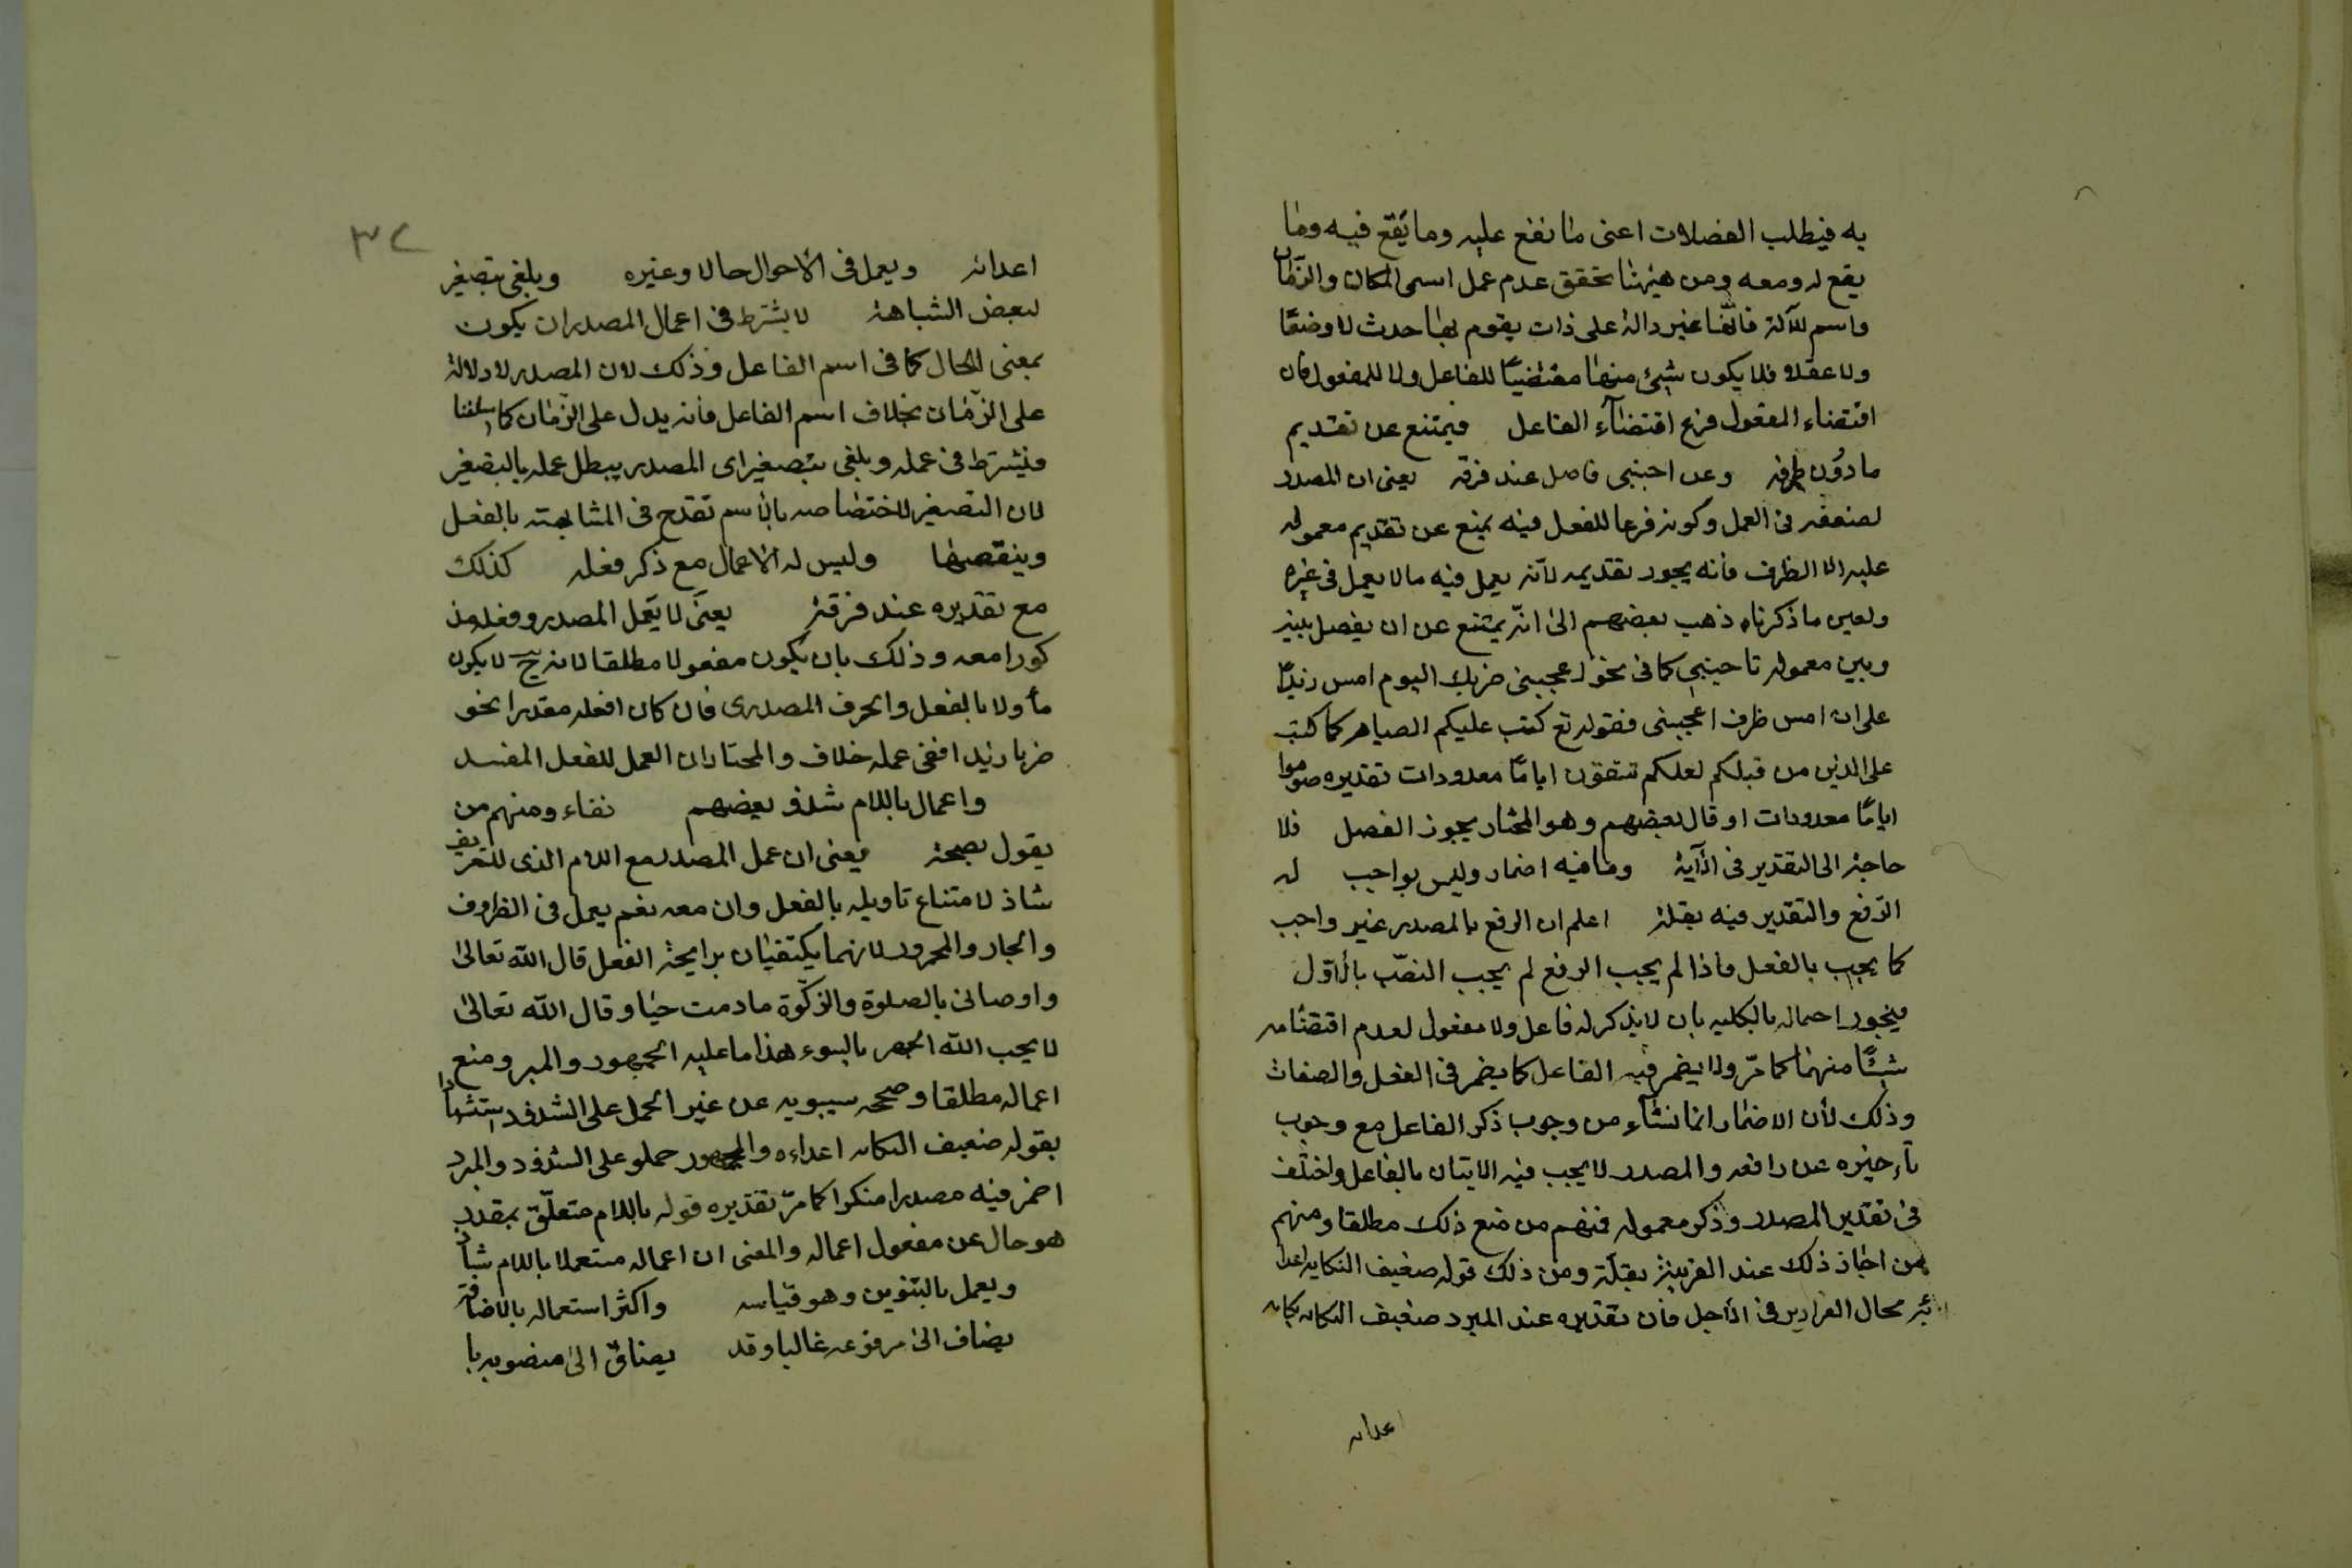 به فيطلب الفضلات اعنى ما نفع عليه وما يَقع فيه وما
يقع له ومعه ومن هيهنا تحقق عدم عمل اسمى المكان والزمان
واسم للآلة فانها غير دالة على ذات يقوم بها حدث لا وضعًا
ولا عقلا فلا يكون شيئ منها مقتضيًا للفاعل ولا للمفعول فان
اقتضاء المفعول فرع اقتضاء الفاعل فيمتنع عن تقديم
مادون ظرفه وعن اجنبى فاصل عند فرقه يعنى ان المصدر
لضعفه فى العمل وكونه فرعا للفعل فيه يمنع عن تقديم معموله
عليه الا الظرف فانه يجوز تقديمه لانه يعمل فيه مالا يعمل فى غيره
ولعين ما ذكرناه ذهب بعضهم الى انه يمتنع عن ان يفصل بينه
وبين معموله باجنبى كما فى نحو اعجبنى ضربك اليوم امس زيدًا
على ان امس ظرف اعجبنى فقوله تع كتب عليكم الصيام كما كتب
على الذين من قبلكم لعلكم تتقون ايامًا معدودات تقديره صوموا
ايامًا معدودات او قال بعضهم وهو المختار يجوز الفصل فلا
حاجة الى التقدير فى الآية وما فيه اضمار وليس بواجب له
الرفع والتقدير فيه بقلة اعلم ان الرفع بالمصدر غير واجب
كما يجب بالفعل فاذا لم يجب الرفع لم يجب النصب بالاول
فيجوز احماله بالكليه بان لا يذكر له فاعل ولا مفعول لعدم اقتضائه
شيئًا منهما كما مرّ ولا يضمر فيه الفاعل كما يضمر فى الفعل والصفات
وذلك لأن الاضمار انما نشاء من وجوب ذكر الفاعل مع وجوب
تأخيره عن رافعه والمصدر لا يجب فيه الاتيان بالفاعل واختلف
فى تقدير المصدر وذكر معموله فمنهم من منع ذلك مطلقا ومنهم
من اجاز ذلك عند القرينة بقلة ومن ذلك قوله ضعيف النكايه اعدا
ئه محال الفرار يرخى الاجل فان تقديره عند المبرد ضعيف النكايه نكايه
اعدائه
٣٢
اعدائه ويعمل فى الاحوال حالا وغيره ويلغى بتصغير
لبعض الشباهة لا يشترط فى اعمال المصدر ان يكون
بمعنى الحال كما فى اسم الفاعل وذلك لان المصدر لا دلالة
على الزمان بخلاف اسم الفاعل فانه يدل على الزمان كما اسلفنا
فيشترط فى عمله ويلغى بتصغير اى المصدر يبطل عمله بالتصغير
لان التصغير لاختصاصه بالاسم تقدح فى المشابهته بالفعل
وينقصها وليس له الاعمال مع ذكر فعله كذلك
مع تقديره عند فرقة يعنى لا يعمل المصدر وفعله مذ
كورا معه وذلك بان يكون مفعولا مطلقا لانه ح لا يكون
مأولا بالفعل والحرف المصدرى فان كان افعله مقدرا نحو
ضربا زيدا ففى عمله خلاف والمختار ان العمل للفعل المفسد
واعمال باللام شذو بعضهم نفاء ومنهم من
يقول بصحة فيعنى ان عمل المصدر مع اللام الذى للتعريف
شاذ لامتناع تاويله بالفعل وان معه نعم يعمل فى الظروف
والجار والمجرور لانهما يكتفيان برايحة الفعل قال الله تعالى
واوصانى بالصلوة والزكوة مادمت حيا وقال الله تعالى
لا يحب الله الجهر بالسوء هذا ما عليه الجمهور والمبر ومنع
اعماله مطلقا وصححه سيبويه عن غير الحمل على الشذوذ استشهادا
بقوله ضعيف النكايه اعداءه والجمهور حملو على الشذوذ والمبرد
اضمر فيه مصدرا منكرا كما مرّ تقديره قوله باللام متعلّق بمقدر
هو حال عن مفعول اعماله والمعنى ان اعماله مستعملا باللام شاذ
ويعمل بالتنوين وهو قياسه واكثر استعماله بالاضافة
يضاف الى مرفوعه غالبا وقد يضاف الى منصوبه با